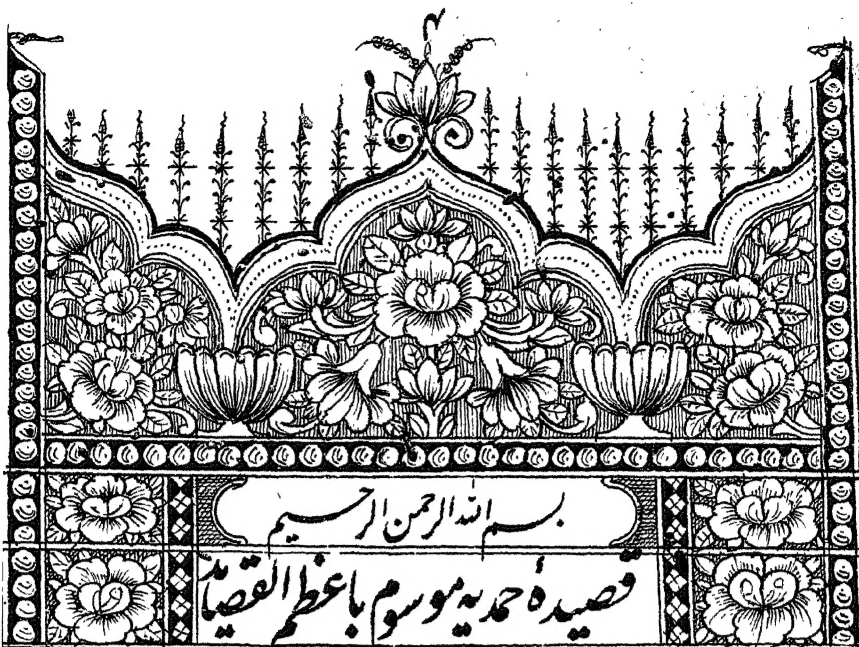 بسم الله الرحمن الرحیم
قصیدهٔ حمدیه موسوم باعظم القصائد